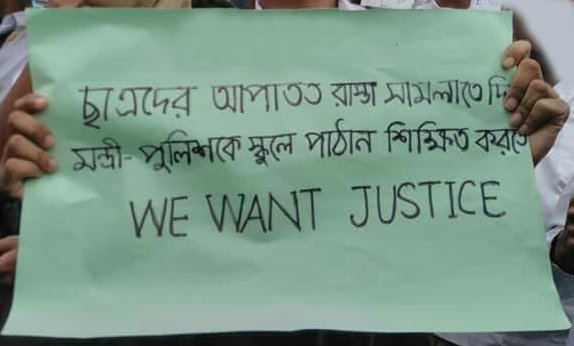 ছাত্রদের আপাতত রাস্তা সামলাতে দি
মন্ত্রী-পুলিশকে স্কুলে পাঠান শিক্ষিত করতে
WE WANT JUSTICE